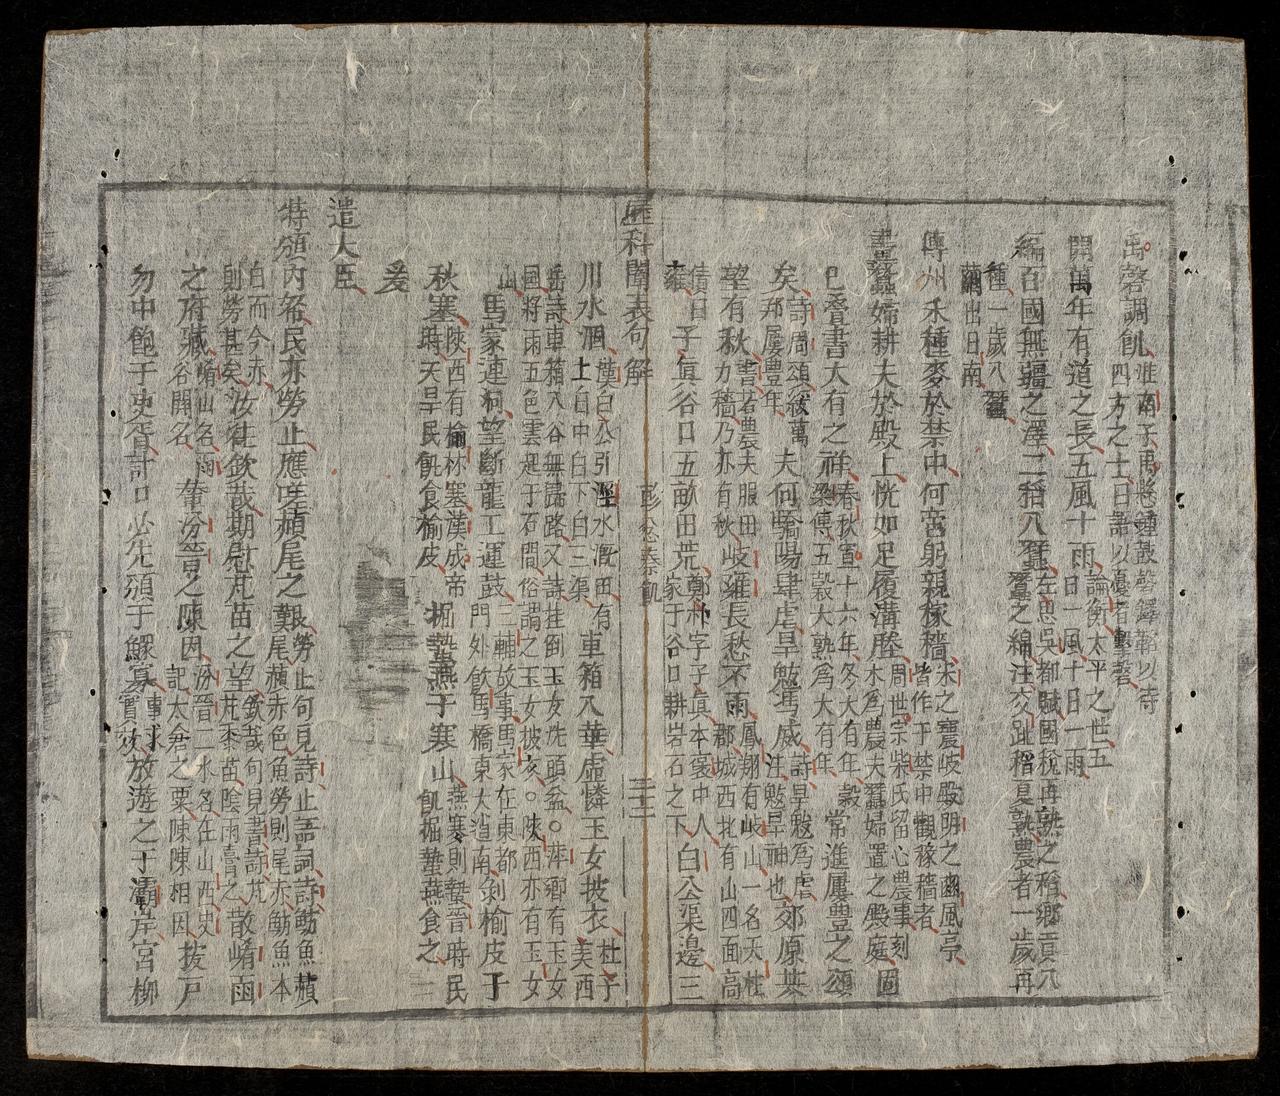 禹磬調飢淮南子禹懸鍾鼓磬鐸鞀以待
四方之士曰語以憂者擊磬
開萬年有道之長五風十雨論衡太平之世五
日一風十日一雨
編百國無疆之澤二稻八蠶左思吳都賦國稅再熟之稻鄉貢八
蠶之綿注交趾稻夏熟農者一歲再
種一歲八蠶
繭出日南
傳州禾種麥於禁中何啻躬親稼穡宋之寶岐殿明之豳風亭
皆作于禁中觀稼穡者
畫蠶婦耕夫於殿上恍如足履溝塍周世宗柴氏留心農事刻
木為農夫蠶婦置之殿庭圖
已叠書大有之祥春秋宣十六年冬大有年穀
梁傳五穀大熟為大有年常進屢豐之頌
矣詩周頌綏萬
邦屢豐年夫何驕陽肆虐旱魃篤威詩旱魃為虐
注魃旱神也郊原共
望有秋書若農夫服田
力穡乃亦有秋岐雍長愁不雨鳳翔有岐山一名天柱
郡城西北有山四面高
雍
積曰子真谷口五畝田荒鄭朴字子真本襃中人
家于谷口耕岩石之下白公渠邊三
歷科闈表句解
彭公悉奏凱
三十二
川水涸漢白公引涇水溉田有
上白中白下白三渠車箱入華虛憐玉女披衣杜子
美西
岳詩車箱入谷無歸路又詩挂倒玉女洗頭盆○萍鄉有玉女
岡將雨五色雲起于石間俗謂之玉女披衣○陝西亦有玉女
山
馬家連洞望斷龍工運鼓三輔故事馬家在東都
門外飲馬橋東大道南剝榆皮于
秋塞陝西有榆林寒漢成帝
時天旱民飢食榆皮掘蟄燕于寒山燕寒則蟄晉時民
飢掘蟄燕食之
爰
遣大臣
特頒內帑民亦勞止應嗟赬尾之艱勞止句見詩止語詞詩魴魚赬
尾赬赤色魚勞則尾赤魴魚本
白而今赤
則勞甚矣汝往欽哉期慰芃苗之望欽哉句見書詩芃
芃黍苗陰雨膏之散崤函
之府藏崤山名函
谷關名肇汾晉之陳因汾晉二水名在山西史
記太倉之粟陳陳相因拔戶
勿中飽于吏胥計口必先頒于鰥寡事求
實效放遊之于灞岸宮柳